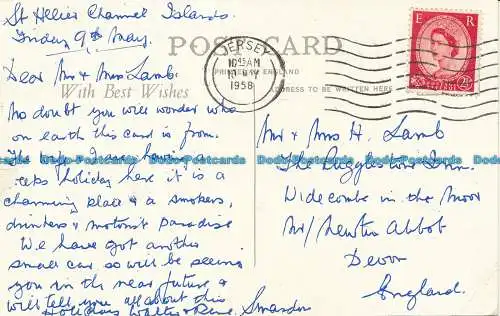 St Helier Channel Islands.
Friday 9th May.
POST CARD
PRINTED IN ENGLAND
ADDRESS TO BE WRITTEN HERE
With Best Wishes
JERSEY
10 15 AM
MAY
1958
E R
Dear Mr & Mrs Lamb.
No doubt you will wonder who
on earth this card is from.
The wife & I are having a
weeks holiday here it is a
charming place & a smokers,
drinkers & motorist Paradise
We have got another
small car so will be seeing
you in the near future &
will tell you all about this
Holiday. Walter & Rene.
Mr & Mrs H. Lamb
The Inn.
Widecombe in the Moor
Nr/ Newton Abbot
Devon
England.
Dodo-Postcards